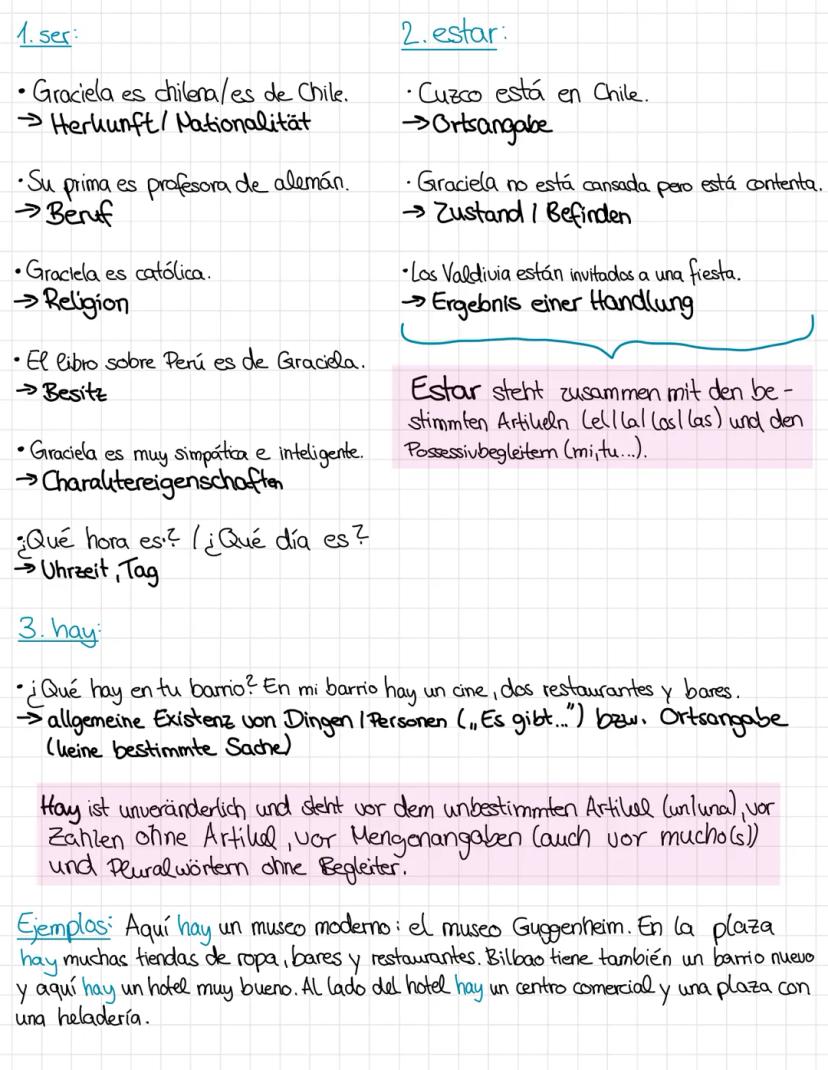 1. ser:
• Graciela es chilena/es de Chile.
→ Herkunft/Nationalität
• Su prima es profesora de alemán.
→ Beruf
• Graciela es católica.
→ Religion
• El libro sobre Perú es de Graciela.
→ Besitz
• Graciela es muy simpática e inteligente.
→ Charaktereigenschaften
¿Qué hora es? / ¿Qué día es?
→ Uhrzeit, Tag
2. estar:
• Cuzco está en Chile.
→ Ortsangabe
• Graciela no está cansada pero está contenta.
→ Zustand / Befinden
• Los Valdivia están invitados a una fiesta.
→ Ergebnis einer Handlung
Estar steht zusammen mit den be-
stimmten Artikeln (el/la/los/las) und den
Possessivbegleitern (mi, tu...).
3. hay:
• ¿Qué hay en tu barrio? En mi barrio hay un cine, dos restaurantes y bares.
→ allgemeine Existenz von Dingen / Personen („Es gibt...") bzw. Ortsangabe
(keine bestimmte Sache)
Hay ist unveränderlich und steht vor dem unbestimmten Artikel (un/una), vor
Zahlen ohne Artikel, vor Mengenangaben (auch vor mucho(s))
und Pluralwörtern ohne Begleiter.
Ejemplos: Aquí hay un museo moderno: el museo Guggenheim. En la plaza
hay muchas tiendas de ropa, bares y restaurantes. Bilbao tiene también un barrio nuevo
y aquí hay un hotel muy bueno. Al lado del hotel hay un centro comercial y una plaza con
una heladería.